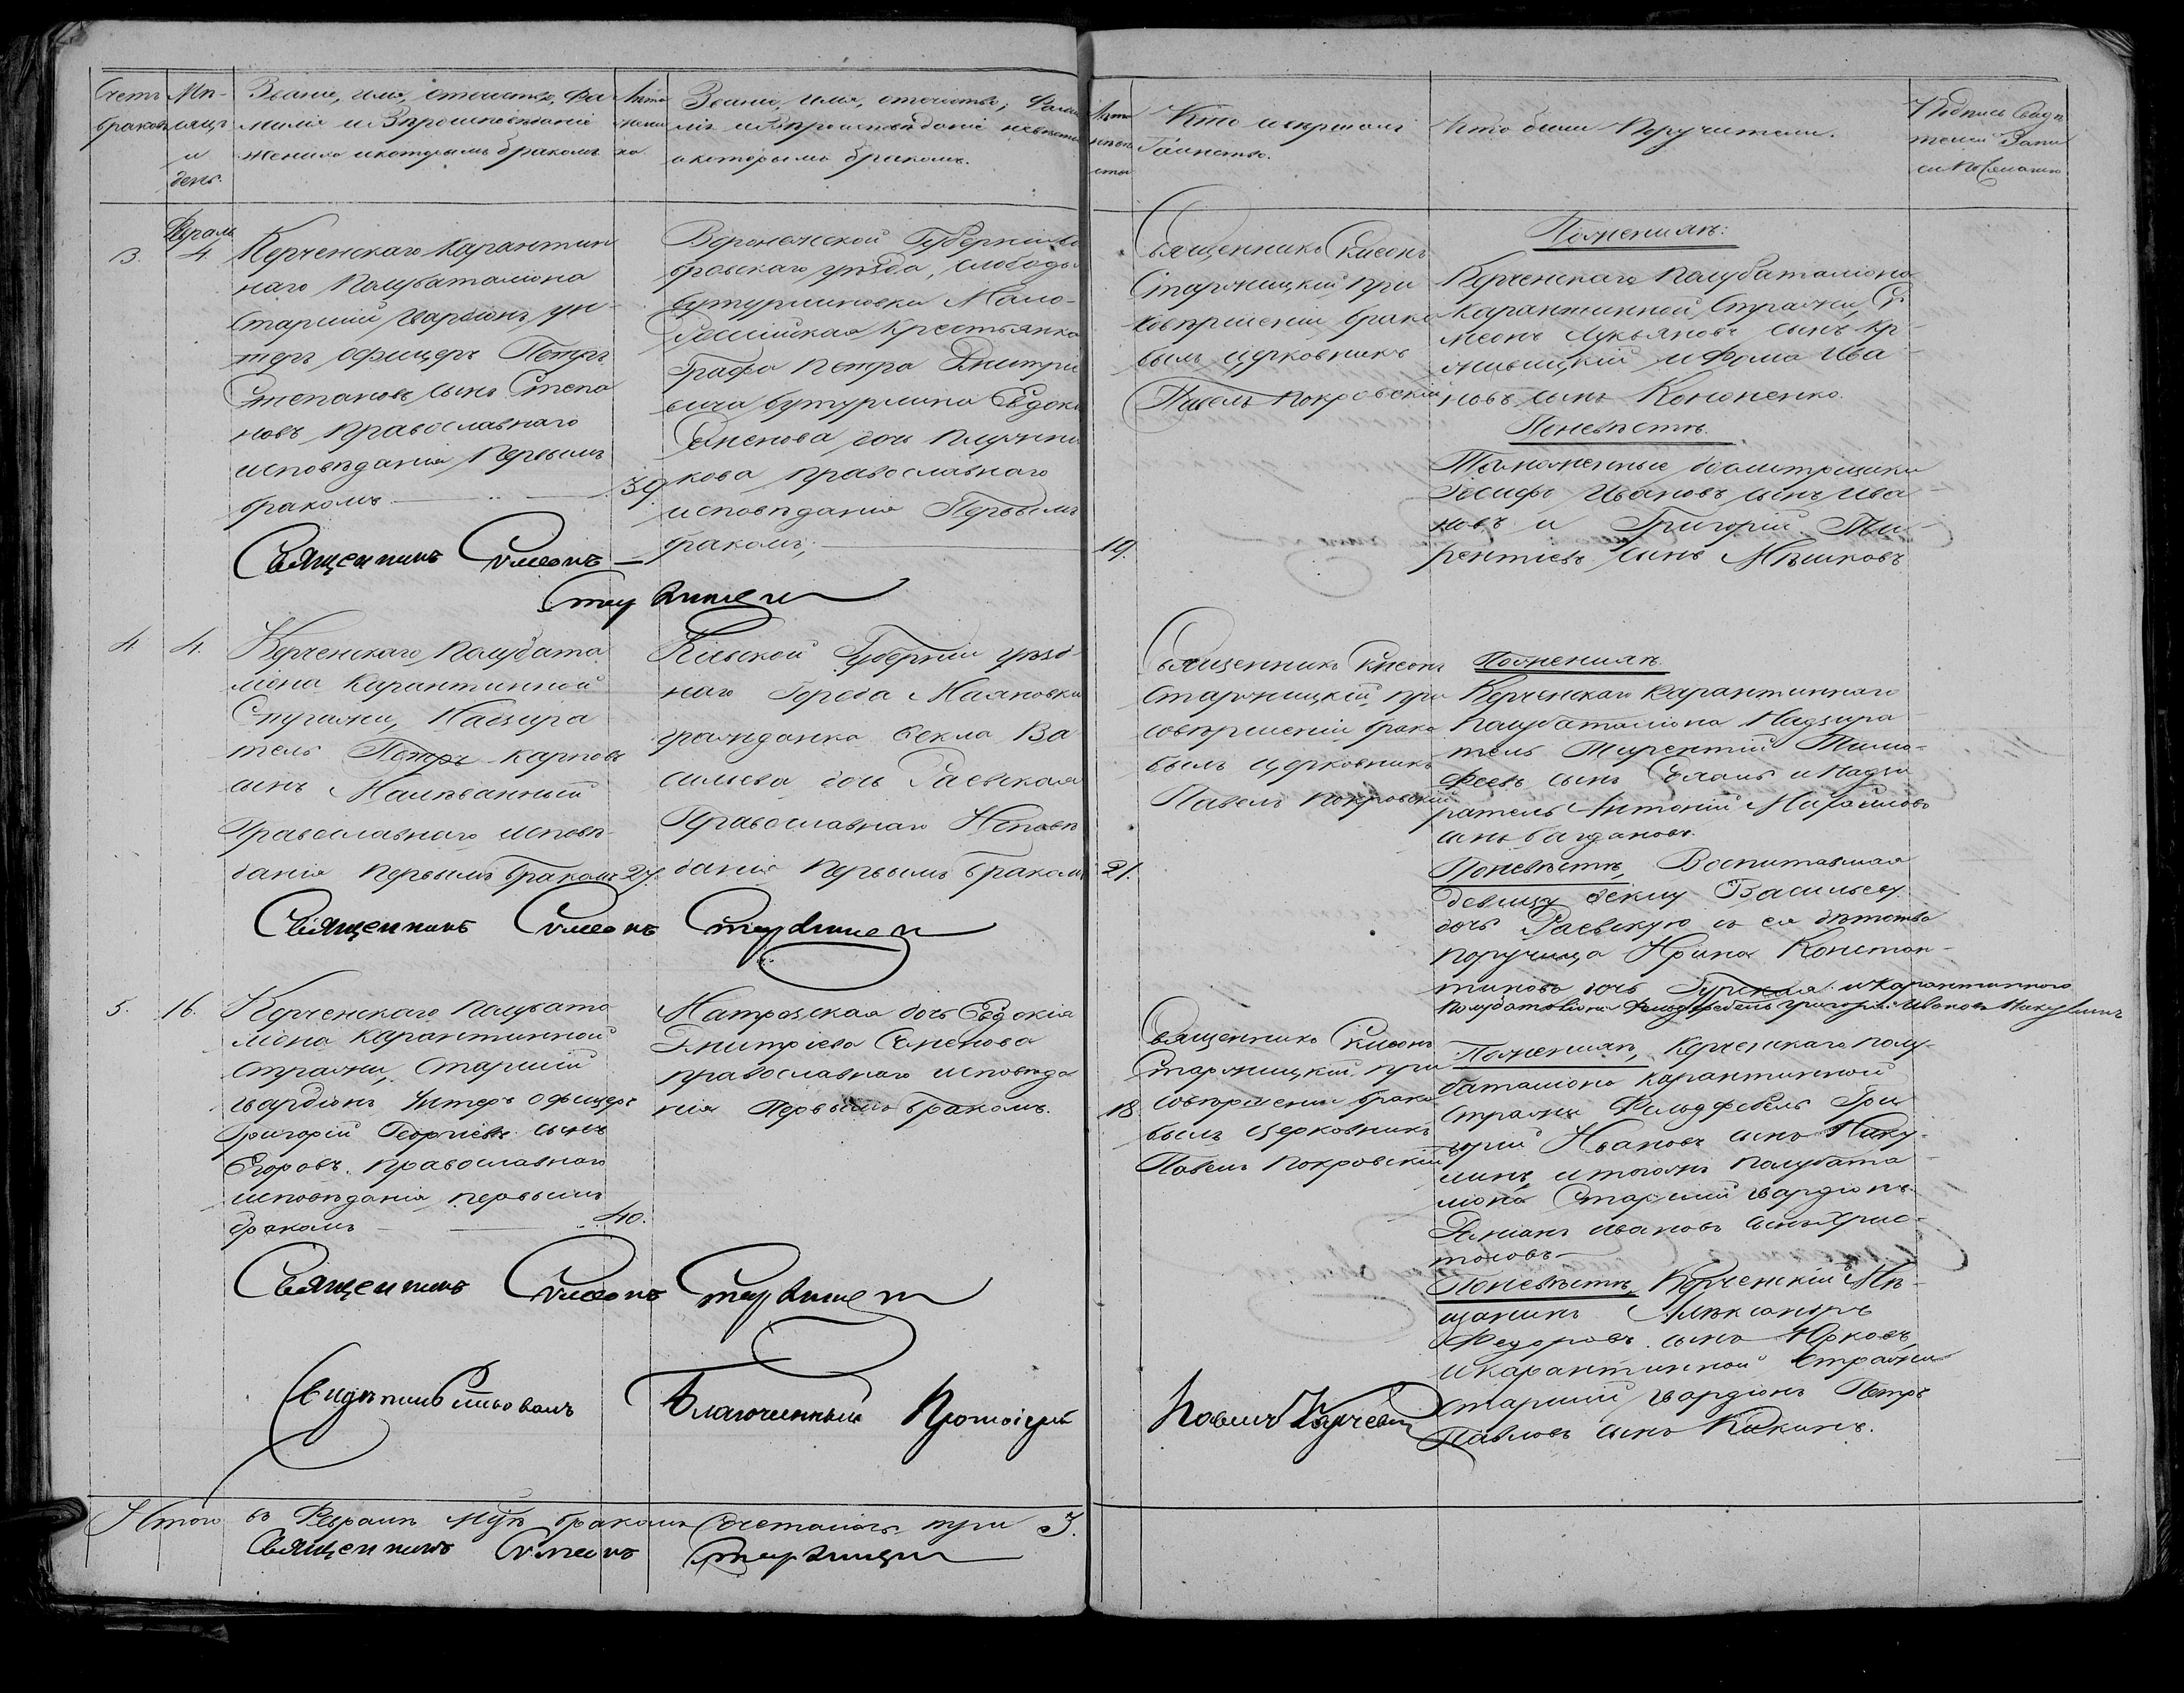 Счетъ браковъ
Мѣсяцъ и день.
Званіе, имя, отечество, фа
милія и вѣроисповѣданіе
жениха и которымъ бракомъ
Лѣта жени ха
Званіе, имя, отечество, Фами
лія и вѣроисповѣданіе невѣсты
и которымъ бракомъ.
Лѣта невѣ сты
Кто совершалъ
Таинство.
Кто были Поручители.
Подпись Свидѣ
телей Запи
си по желанію
3.
Февраль
4.
Керченскаго Карантин
наго Полубаталіона
Старшій гвардіонъ ун-
теръ офицеръ Петръ
Степановъ сынъ Степа
новъ православнаго
исповѣданія Первымъ
бракомъ
39.
Воронежской Губерніи Бо
бровскаго уѣзда, слободы
Бутурлиновки Мало-
Россійская крестьянка
Графа Петра Дмитрі
евича Бутурлина Евдокі
Семенова дочь
кова православнаго
исповѣданія Первымъ
бракомъ;
19.
Священникъ Симеонъ
Старжицкій при
Совершеніи брака
былъ Церковникъ
Павелъ Покровскій
Поженихѣ:
Керченскаго Полубаталіона
Карантинной Стражи, Си
меонъ Лукьяновъ сынъ Кр
жившцкій и Фома Ива
новъ сынъ Кононенко.
Поневѣстѣ.
Таможенные досмотрщики
Іосифъ Ивановъ сынъ Ива
новъ и Григорій Те-
рентіевъ сынъ Мѣшковъ
Священникъ Симеонъ
Старжицкій
4.
4.
Керченскаго Полубата
ліона Карантинной
Стражи, Надзира
тель Петръ Карповъ
сынъ Малеванный
Православнаго исповѣ-
данія первымъ бракомъ
27.
Кіевской Губерніи уѣзд-
наго Города
гражданка Ѳекла Ва
сильева дочь Раевская
Православнаго Исповѣ
данія Первымъ бракомъ
21.
Священникъ Симеонъ
Старжицкій, при
совершеніи брака
былъ церковникъ
Павелъ Покровскій
Поженихѣ
Керченскаго Карантиннаго
Полубаталіона Надзира
тель Терентій Тимо-
феевъ сынъ и надзи
ратель Антоній Михайловъ
сынъ Богдановъ.
Поневѣстѣ, Воспитавшая
девицу Ѳеклу Васильеву
дочь Раевскую съ ея дѣтства
поручица Ирина Констан-
тинова дочь Гурская и карантиннаго
Полубаталіона Фельдфебель Григорій Ивановъ Никулинъ
Священникъ Симеонъ Старжицкій
5.
16.
Керченскаго Полубата
ліона Карантинной
Стражи, Старшій
гвардіонъ Унтеръ офицеръ
Григорій Георгіевъ сынъ
Егоровъ. православнаго
исповѣданія первымъ
бракомъ
40.
Матроская дочь Евдокія
Дмитріева Семенова
православнаго исповѣда
нія Первымъ бракомъ.
18.
Священникъ Симеонъ
Старжицкій при
Совершеніи брака
былъ Церковникъ
Павелъ Покровскій
Поженихѣ, Керченскаго полу-
баталіона Карантинной
Стражи Фельдфебель Гри
горій Ивановъ сынъ Нику-
линъ, и тогожъ Полубата
ліона Старшій гвардіонъ
Даміанъ Ивановъ сынъ Хрис-
тофовъ
Поневѣстѣ, Керченскій Мѣ-
щанинъ Александръ
Федоровъ сынъ Юрковъ,
и карантинной Стражи
старшій гвардіонъ Петръ
Павловъ сынъ Кикинъ.
Священникъ Симеонъ Старжицкій
Свидѣтельствовалъ Благочинный Протоіерей Павелъ
Итого въ Февралѣ М-цѣ бракомъ сочеталось три 3.
Священникъ Симеонъ Старжицкій